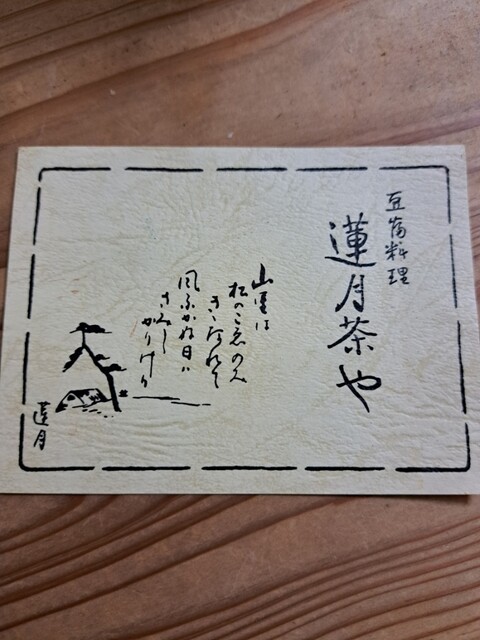 豆腐料理
蓮月茶や
山里は
松のこゑのみ
きゝなれて
風ふかぬ日ハ
さみし
かりけり
蓮月